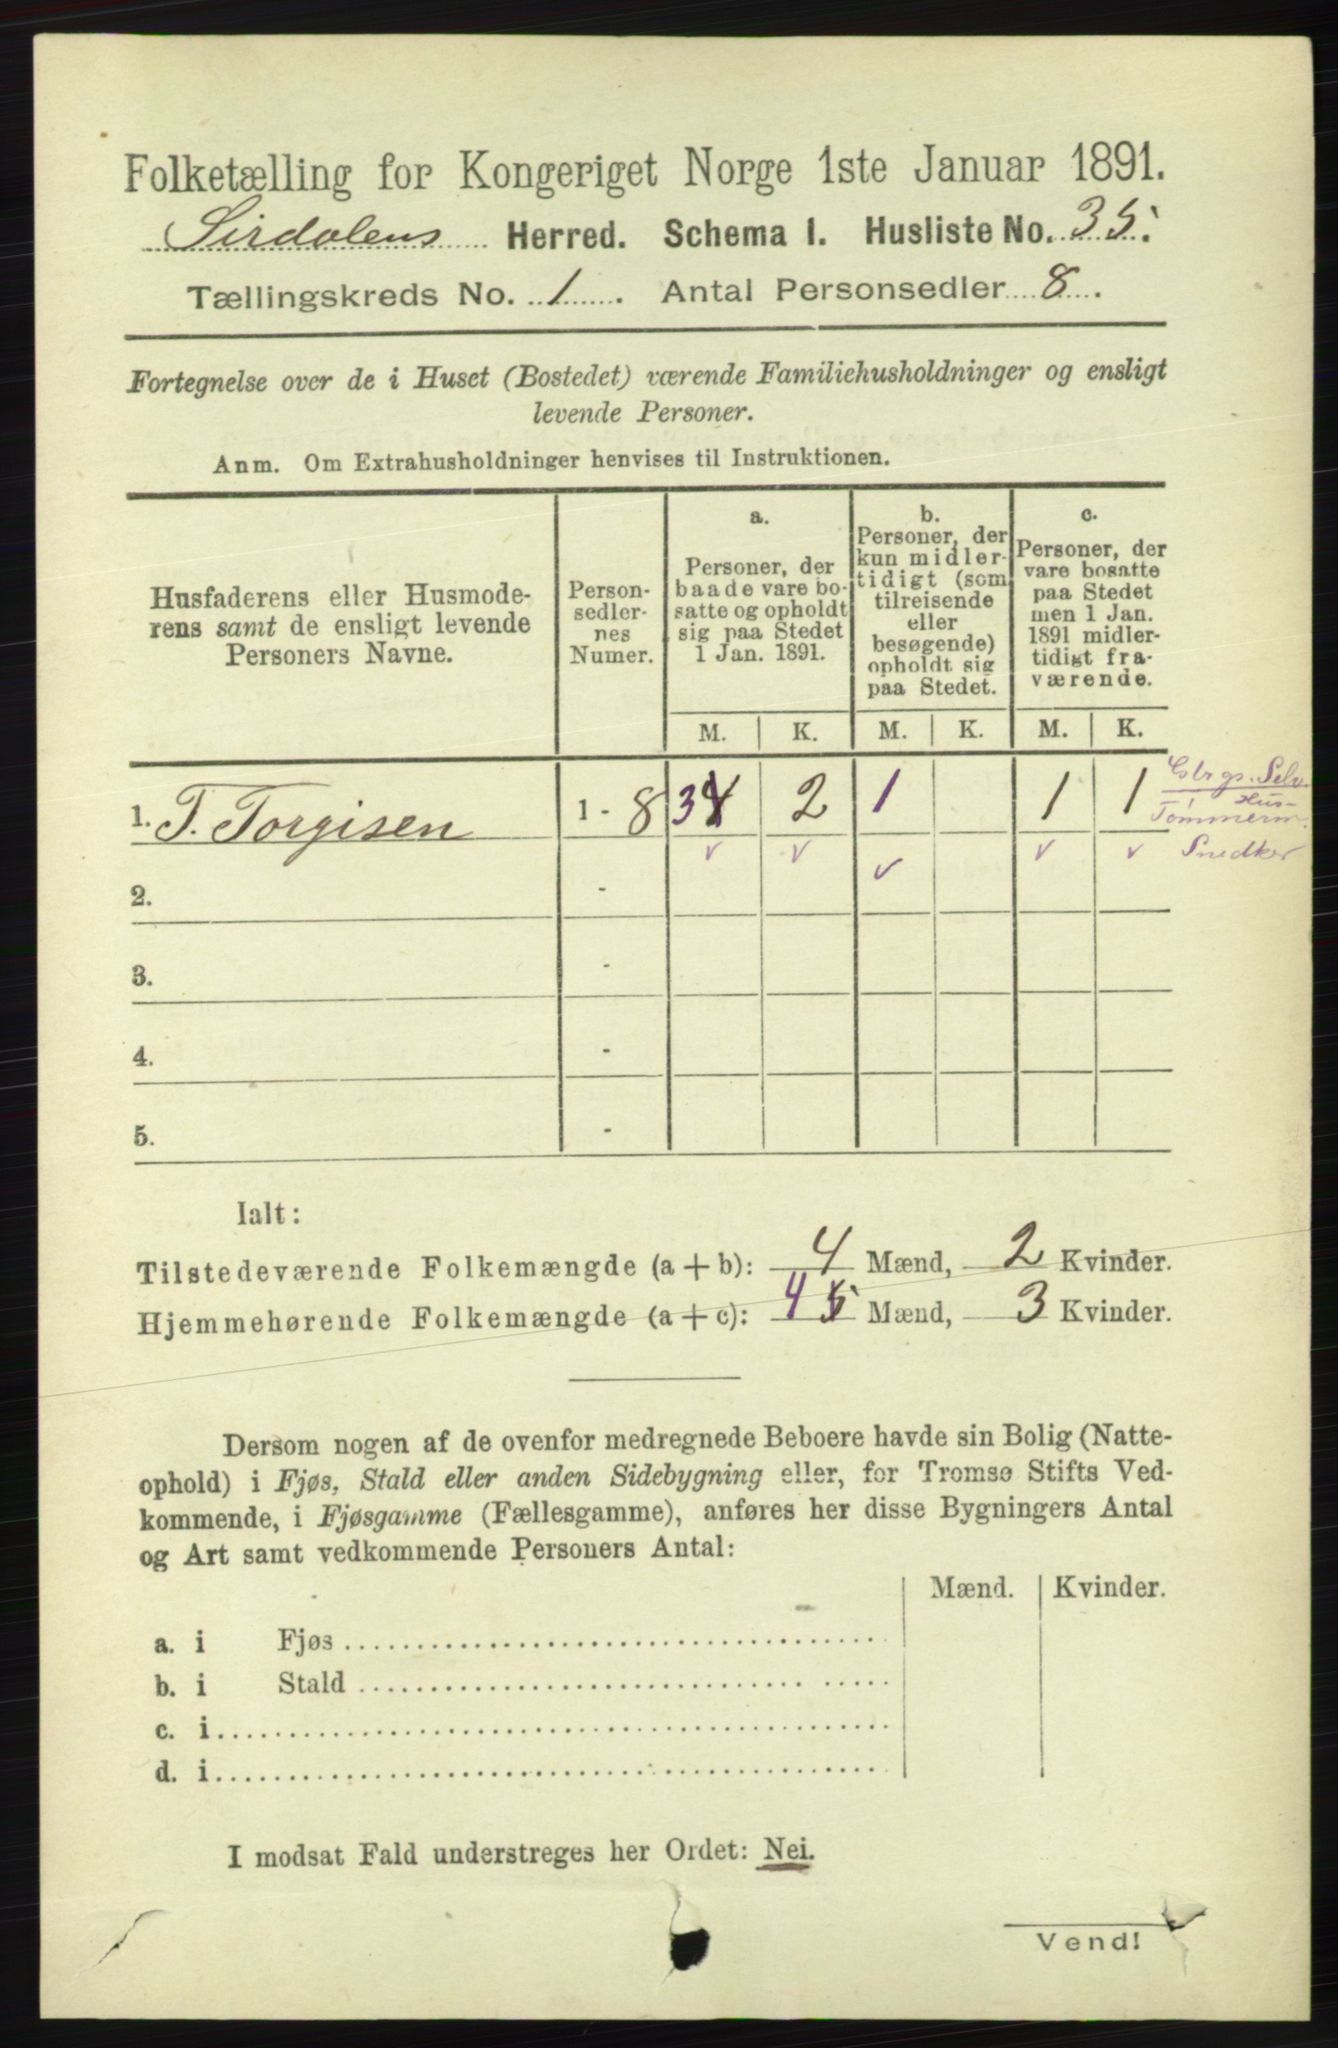 Folketælling for Kongeriget Norge 1ste Januar 1891.
Sirdalens Herred. Schema I. Husliste No. 35.
Tællingskreds No. 1. Antal Personsedler 8.
Fortegnelse over de i Huset (Bostedet) værende Familiehusholdninger og ensligt
levende Personer.
Anm. Om Extrahusholdninger henvises til Instruktionen.
Husfaderens eller Husmode-
rens samt de ensligt levende
Personers Navne.
Person-
sedler-
nes
Numer.
a.
Personer, der
baade vare bo-
satte og opholdt
sig paa Stedet
1 Jan. 1891.
b.
Personer, der
kun midler-
tidigt (som
tilreisende
eller
besøgende)
opholdt sig
paa Stedet.
c.
Personer, der
vare bosatte
paa Stedet
men 1 Jan.
1891 midler-
tidigt fra-
værende.
M. K. M. K. M. K.
1. T. Torgisen 1 - 8 3 4 2 1 1 1
Selv.
Hus-
Tømmerm.
Snedker
2. -
3. -
4. -
5. -
Ialt:
Tilstedeværende Folkemængde (a + b): 4 Mænd, 2 Kvinder.
Hjemmehørende Folkemængde (a + c): 4 5 Mænd, 3 Kvinder.
Dersom nogen af de ovenfor medregnede Beboere havde sin Bolig (Natte-
ophold) i Fjøs, Stald eller anden Sidebygning eller, for Tromsø Stifts Ved-
kommende, i Fjøsgamme (Fællesgamme), anføres her disse Bygningers Antal
og Art samt vedkommende Personers Antal:
Mænd. Kvinder.
a. i Fjøs
b. i Stald
c. i
d. i
I modsat Fald understreges her Ordet: Nei.
Vend!